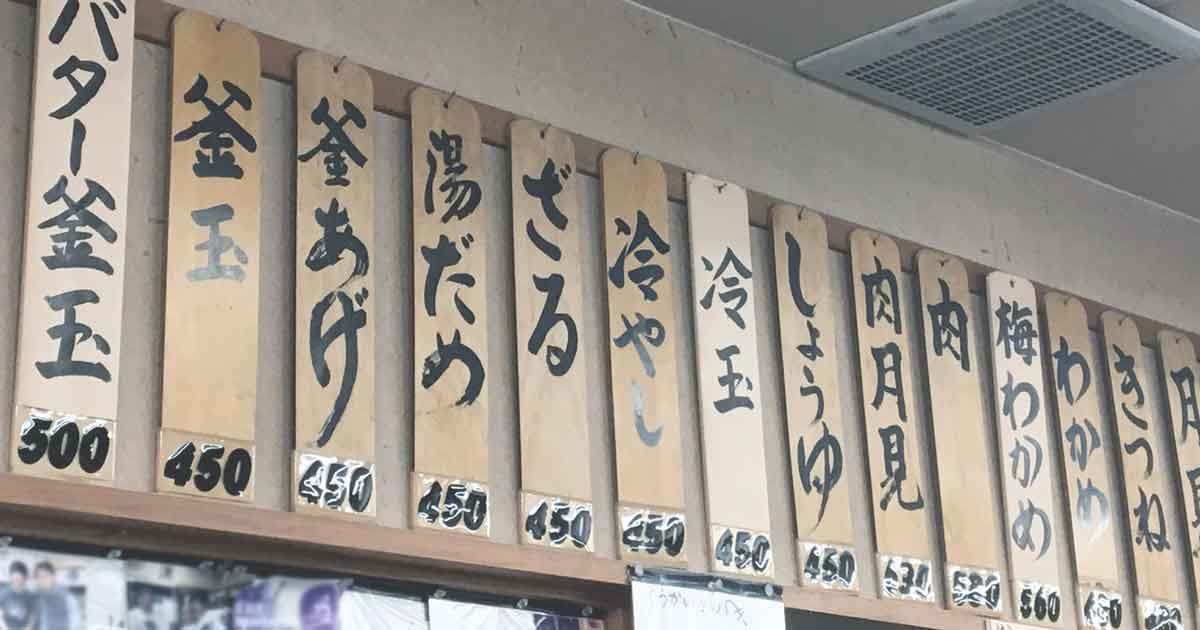 バター釜玉
500
釜玉
450
釜あげ
450
湯だめ
450
ざる
450
冷やし
450
冷玉
450
しょうゆ
450
肉月見
630
肉
580
梅わかめ
560
わかめ
きつね
月見